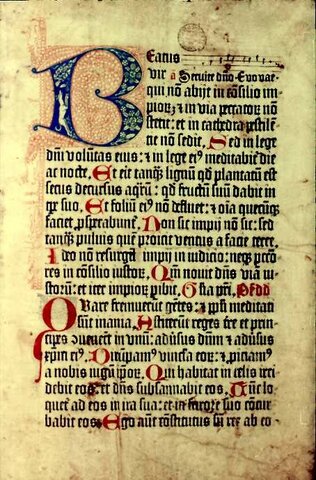 Beatus
vir a Seruite dño. Euo vae.
qui nõ abijt in cõsilio im⸗
pioꝝ: ⁊ in via pctõꝝ nõ
stetit: et in cathedra pestilẽ⸗
tie nõ sedit. Sed in lege
dñi volũtas eius: ⁊ in lege eiꝰ meditabiĩ die
ac nocte. Et erit tanqᷓ lignũ qd plantatũ est
secus decursus aqꝝ: qd fructũ suũ dabit in
tꝑe suo. Et foliũ eiꝰ nõ defluet: ⁊ oĩa quecũqꝫ
faciet ꝓsperabunt̃. Non sic impij nõ sic: sed
tanqᷓ puluis quẽ proicit ventus a facie terre.
Ideo nõ resurgũt impij in iudicio: neqꝫ pctõ⸗
res in cõsilio iustoꝝ. Qm̃ nouit dñs viã iu⸗
stoꝝ: et iter impioꝝ ꝑibit. Gl̃ia pr̃i.
Quare fremuerũt gẽtes: ⁊ ppłi meditati
sũt inania. Astiterũt reges tre et prin⸗
cipes ⁊uenerũt in vnũ: aduisus dñm ⁊ aduisus
xpm̃ eiꝰ. Dirũpamꝰ vincla eoꝝ: ⁊ ꝓiciamꝰ
a nobis iugũ ip̃oꝝ. Qui habitat in celis irri⸗
debit eos: et dñs subsannabit eos. Tũc lo⸗
quet̃ ad eos in ira sua: et in furore suo cõtur
babit eos. Ego aut̃ cõstitutus sũ rex ab eo